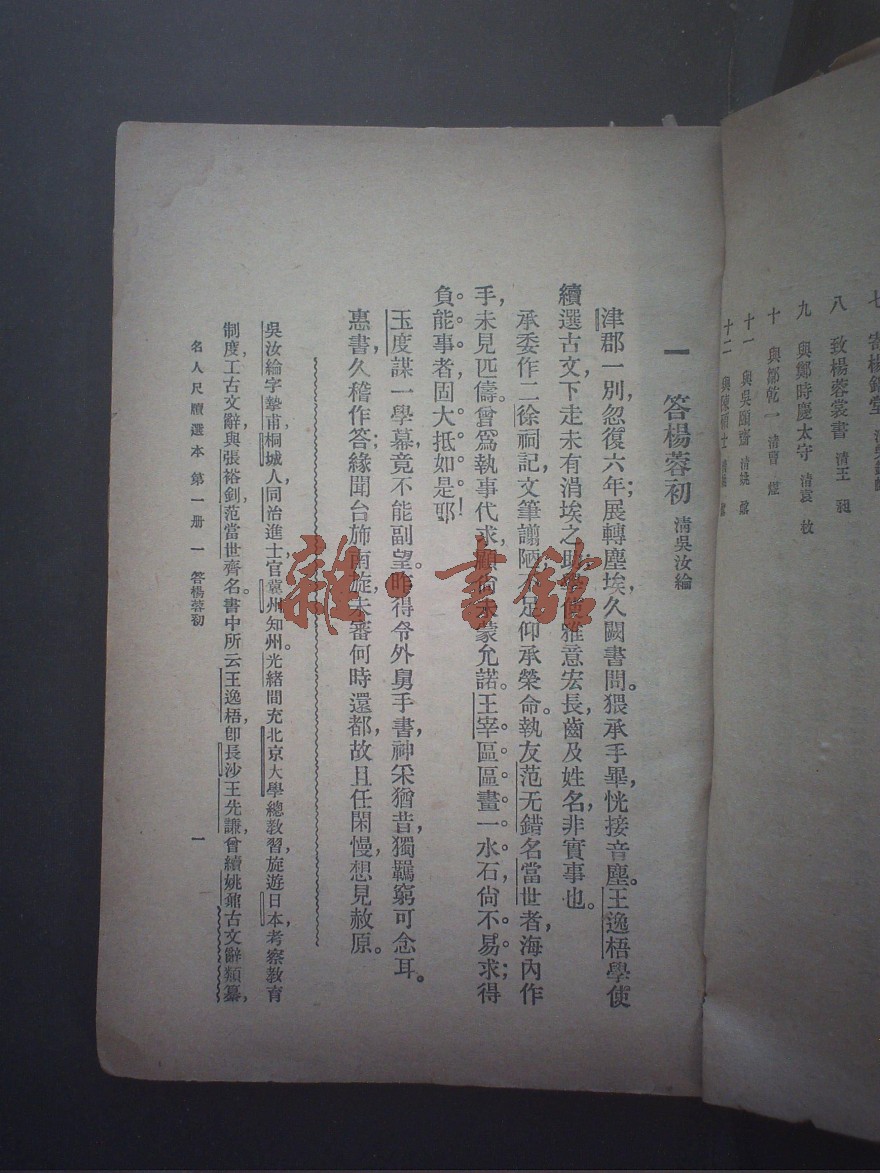 七 寄楊
八 致楊蓉裳書 清王昶
九 與鄭時慶太守 清袁枚
十 與鄒乾一 清曹
十一 與吳頤齋 清姚鼐
十二 與陳碩士
一 答楊蓉初 清吳汝綸
津郡一別，忽復六年；展轉塵埃，久闕書問。猥承手畢，恍接音塵。王逸梧學使
續選古文，下走未有涓埃之助，雅意宏長，齒及姓名，非實事也。
承委作二徐祠記，文筆譾陋，足仰承榮命。執友范无錯名當世者，海內作
手，未見匹儔。曾爲執事代求，顧尙未蒙允諾。王宰區區畫一水石，尙不易求得；
負能事者，固大抵如是耶！
玉度謀一學幕，竟不能副望。昨得令外舅手書，神采猶昔，獨羈窮可念耳。
惠書久稽作答，緣聞台斾南旋，未審何時還都，故且任閑慢，想見赦原。
吳汝綸字摯甫，桐城人，同治進士，官冀州知州。光緒間充北京大學總敎習，旋遊日本，考察敎育
制度，工古文辭，與張裕釗，范當世齊名。書中所云王逸梧，卽長沙王先謙，曾續姚鼐古文辭類纂，
名人尺牘選本 第一册 一 答楊蓉初 一
雜·書館